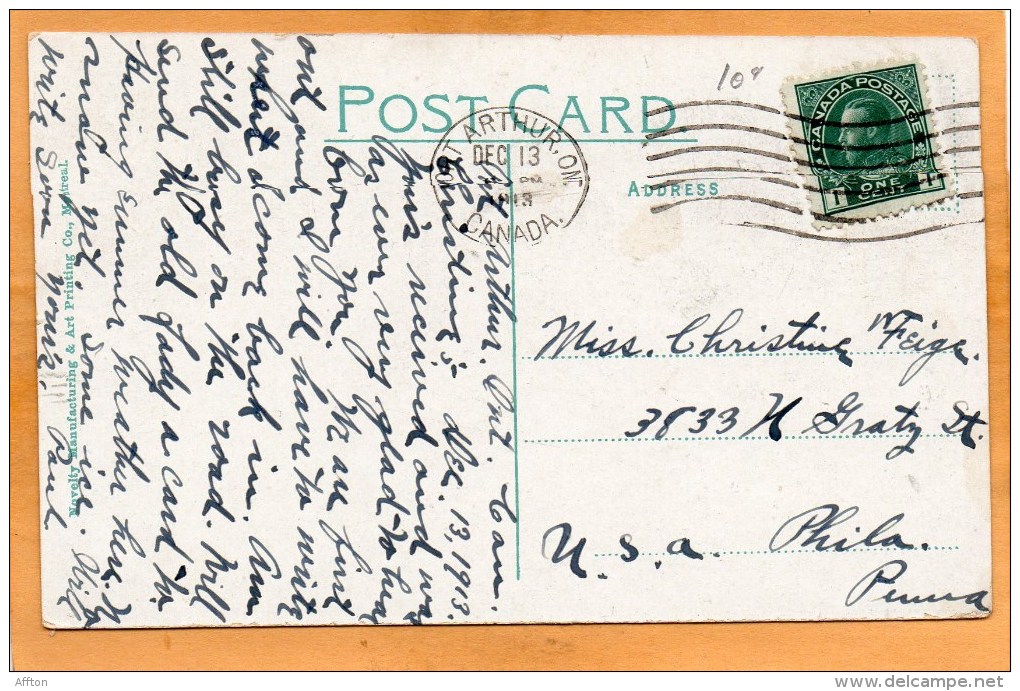 10¢
POST CARD
PORT ARTHUR, ONT
DEC 13
1913
CANADA.
CANADA POSTAGE
ONE CENT
1
ADDRESS
Miss. Christina Feige.
3833 N Gratz St.
Phila.
U.S.a. Penna
Port Arthur. Ont. Can.
Christina:- Dec. 13, 1913
Yours received and was
as ever very glad to hear
from you. We are fine
and I will have to write
out and
what come back in. Am
still busy on the road. Will
send the old lady a card to.
Having summer weather here. No
snow yet, some ice. Will
write soon yours. Paul
Novelty Manufacturing & Art Printing Co., Montreal.
Affton
www.delcampe.net